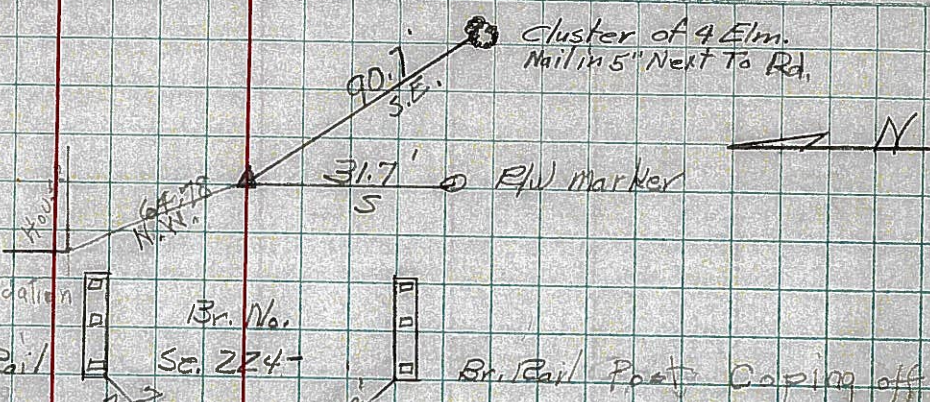 Cluster of 4 Elm.
Nail in 5" Next To Rd.
90.7'
S.E.
N
31.7'
S
R/W marker
64.78
N.W.
House
dation
Br. No.
Se. 224-
Rail
Br. Rail Post Coping off